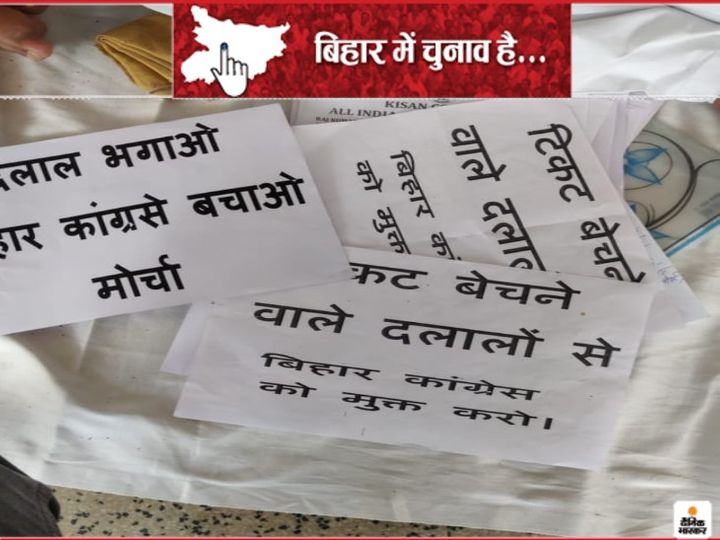 बिहार में चुनाव है...
KISAN
ALL INDIA
दलाल भगाओ
हार कांग्रसे बचाओ
मोर्चा
टिकट बेचने
वाले दलाल
बिहार कां
को मुक्त
कट बेचने
वाले दलालों से
बिहार कांग्रेस
को मुक्त करो।
दैनिक
भास्कर